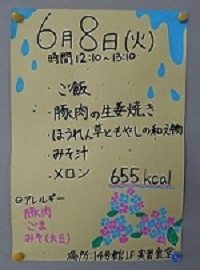 6月8日(火)
時間 12:10~13:10
・ご飯
・豚肉の生姜焼き
・ほうれん草ともやしの和え物
・みそ汁
・メロン
655kcal
◎アレルギー
豚肉
ごま
みそ(大豆)
場所:14号館1F実習食堂